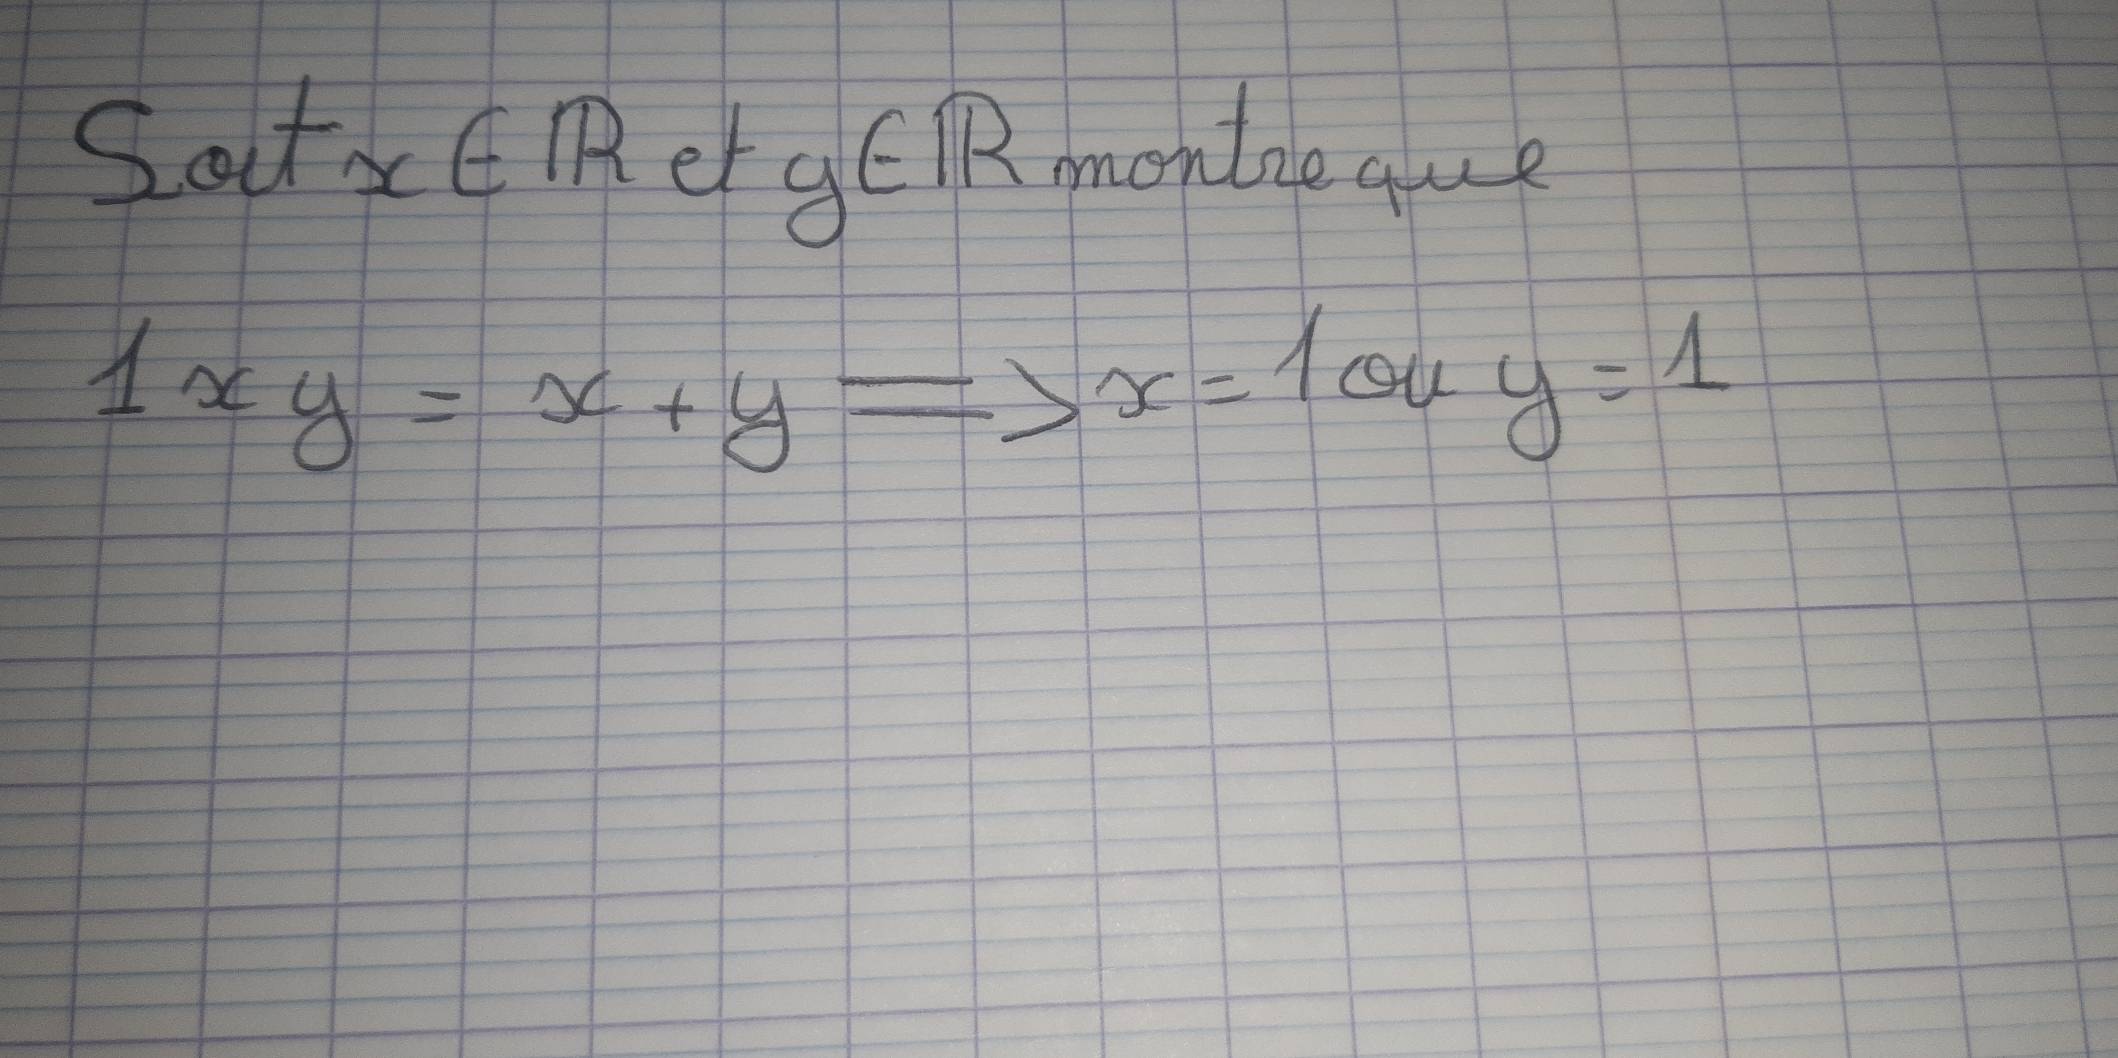 Soit x ∈ ℝ et y ∈ ℝ montre que
1xy = x + y => x = 1 ou y = 1